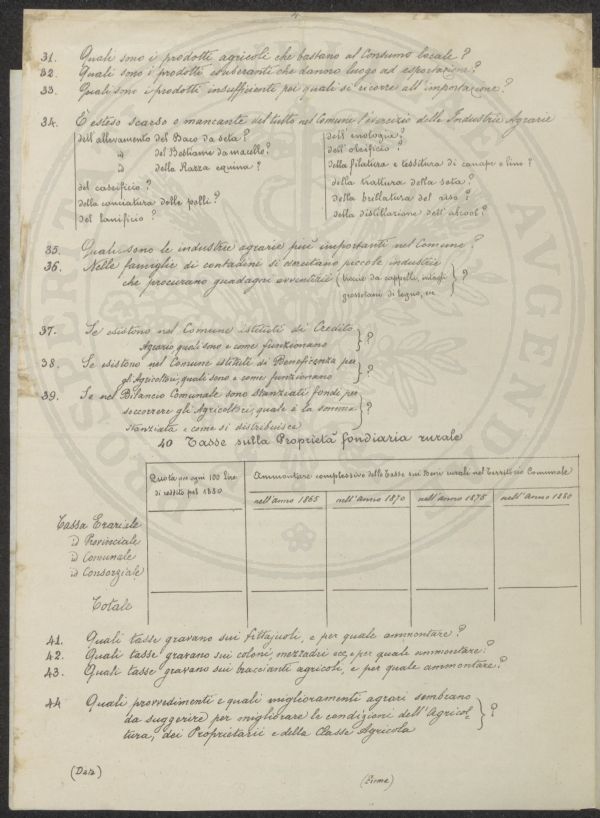 31. Quali sono i prodotti agricoli che bastano al Consumo locale?
32. Quali sono i prodotti esuberanti che danno luogo ad esportazione?
33. Quali sono i prodotti insufficienti poi quali si ricorre all'importazione?
34. È esteso scarso o mancante del tutto nel Comune l'esercizio delle Industrie Agrarie
dell'allevamento del Baco da seta?
" del Bestiame da macello?
" della Razza equina?
del caseificio?
della conciatura delle pelli?
del lanificio?
dell'enologia?
dell'oleificio?
della filatura e tessitura di canape e lino?
della trattura della seta?
della brillatura del riso?
della distillazione dell'alcool?
35. Quali sono le industrie agrarie più importanti nel Comune?
36. Nelle famiglie di contadini si esercitano piccole industrie
che procurano guadagni avventizii (treccie da cappello, intagli
grossolani di legno, ecc ?
37. Se esistono nel Comune istituti di Credito
Agrario, quali sono e come funzionano ?
38. Se esistono nel Comune istituti di Beneficenza per
gli Agricoltori, quali sono e come funzionano ?
39. Se nel Bilancio Comunale sono stanziati fondi per
soccorrere gli Agricoltori, quale è la somma
stanziata e come si distribuisce ?
40 Tasse sulla Proprietà fondiaria rurale
Quota per ogni 100 Lire
di reddito pel 1880
Ammontare complessivo delle Tasse sui Beni rurali nel Territorio Comunale
nell'anno 1865 nell'anno 1870 nell'anno 1875 nell'anno 1880
Tassa Erariale
id Provinciale
id Comunale
id Consorziale
Totale
41. Quali tasse gravano sui fittajuoli, e per quale ammontare?
42. Quali tasse gravano sui coloni, mezzadri ecc, e per quale ammontare?
43. Quali tasse gravano sui braccianti agricoli, e per quale ammontare?
44 Quali provvedimenti e quali miglioramenti agrari sembrano
da suggerire per migliorare le condizioni dell'Agricol-
tura, dei Proprietarii e della Classe Agricola ?
(Data)
(Firma)